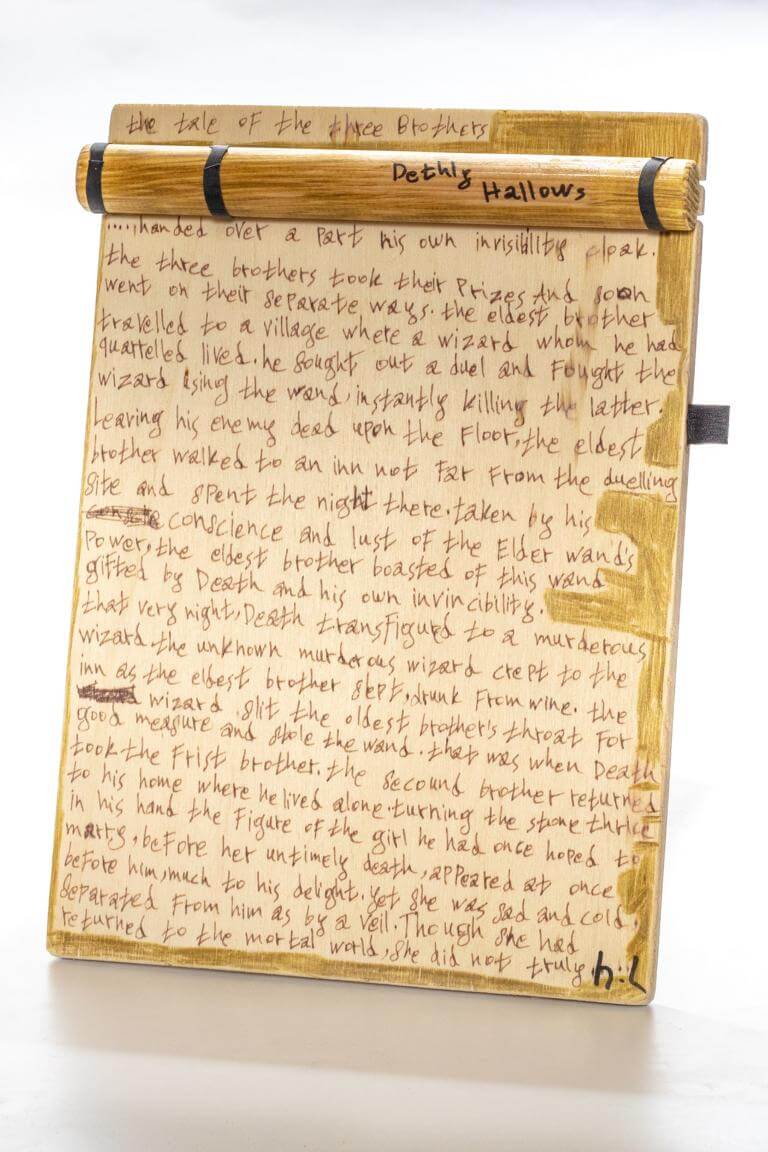 the tale of the three Brothers
Dethly
Hallows
....,handed over a part his own invisibility cloak.
the three brothers took their Prizes And soon
went on their separate ways. the eldest brother
travelled to a village where a wizard whom he had
quarrelled lived. he sought out a duel and Fought the
wizard using the wand, instantly killing the latter.
Leaving his enemy dead upon the Floor, the eldest
brother walked to an inn not Far From the duelling
site and spent the night there. taken by his
conscience and lust of the Elder wand's
Power, the eldest brother boasted of this wand
gifted by Death and his own invincibility.
that very night, Death transFigurd to a murderous
wizard. the unknown murderous wizard crept to the
inn as the eldest brother slept, drunk From wine. the
wizard slit the oldest brother's throat For
good measure and stole the wand. that was when Death
took the Frist brother. the secound brother returned
to his home where he lived alone. turning the stone thrice
in his hand the Figure of the girl he had once hoped to
marry, beFore her untimely death, appeared at once
before him, much to his delight. yet she was sad and cold,
separated From him as by a veil. Though she had
returned to the mortal world, she did not truly